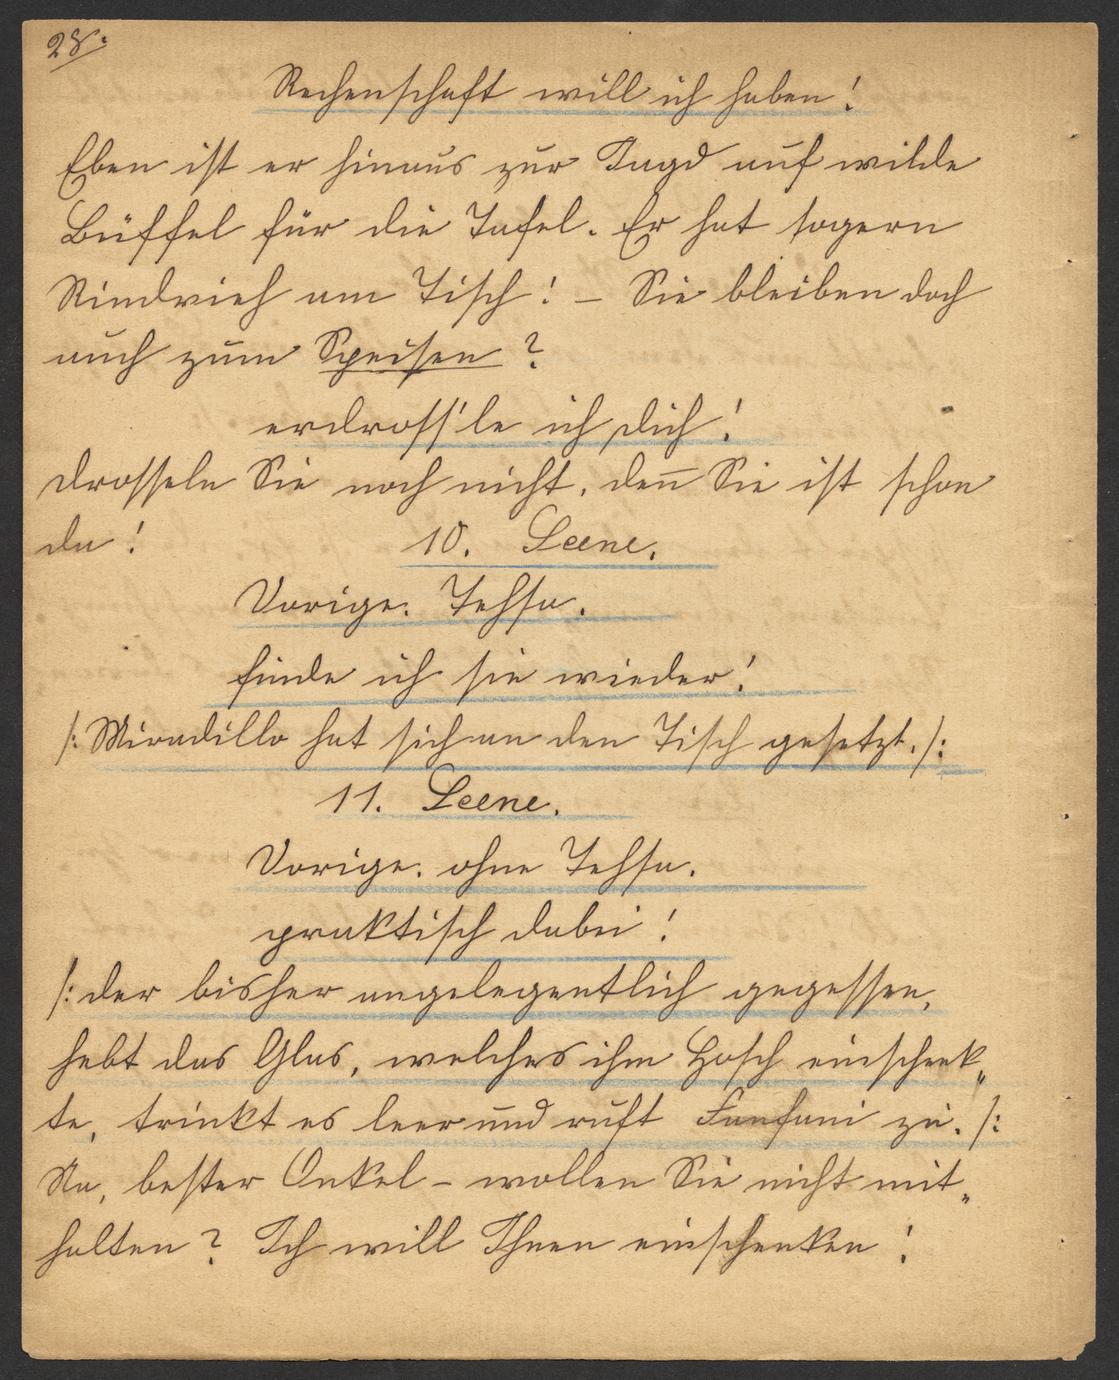 28.
Rechenschaft will ich haben!
Eben ist er hinaus zur Jagd auf wilde
Büffel für die Tafel. Er hat sogern
Rindvieh am Tisch! – Sie bleiben doch
auch zum Speisen?
erdross'le ich dich!
drosseln Sie noch nicht, den̅ Sie ist schon
da!
10. Scene.
Vorige. Tehsa.
finde ich sie wieder!
/: Miradillo hat sich an den Tisch gesetzt. /:
11. Scene.
Vorige. ohne Tehsa.
praktisch dabei!
/: der bisher angelegentlich gegessen,
hebt das Glas, welches ihm Hosch einschenk„
te, trinkt es leer und ruft Fanfani zu. /:
Na, bester Onkel – wollen Sie nicht mit„
halten? Ich will Ihnen einschenken!